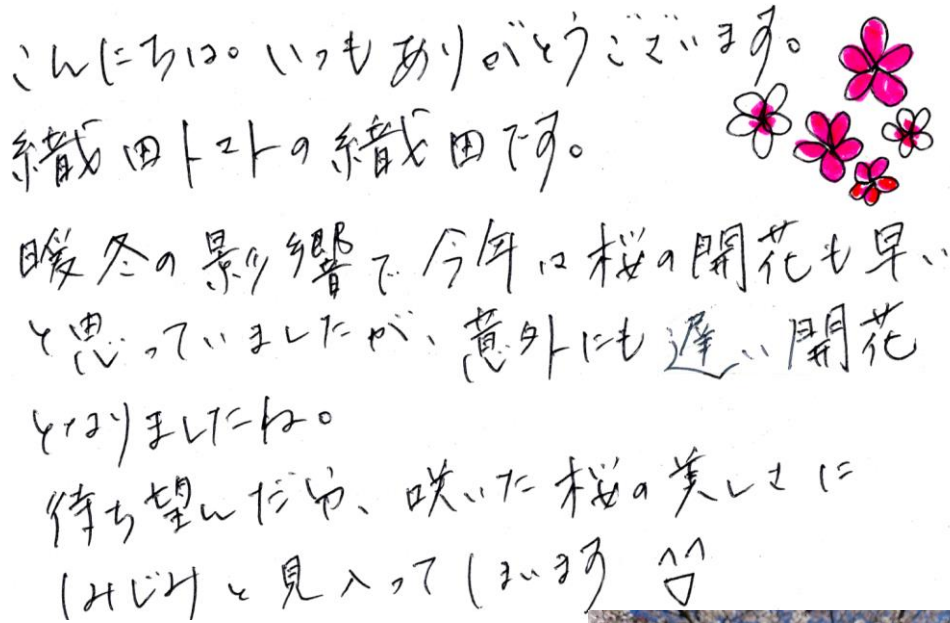 こんにちは。いつもありがとうございます。
織田トマトの織田です。
暖冬の影響で今年は桜の開花も早い
と思っていましたが、意外にも遅い開花
となりましたね。
待ち望んだ分、咲いた桜の美しさに
しみじみと見入ってしまいます